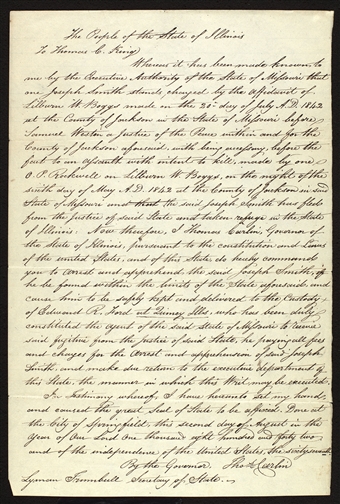 The People of the State of Illinois
To Thomas C. King
Whereas it has been made known to
me by the Executive Authority of the State of Missouri that
one Joseph Smith stands charged by the affidavit of
Lilburn W Boggs made on the 20th day of July A.D. 1842
at the County of Jackson in the State of Missouri before
Samuel Weston a justice of the Peace within and for the
County of Jackson aforesaid with being accessary before the
fact to an assault with intent to kill, made by one
O P. Rockwell on Lilburn W Boggs, on the night of the
sixth day of May A.D. 1842 at the County of Jackson in said
State of Missouri and that the said Joseph Smith has fled
from the justice of said State and taken refuge in the State
of Illinois. Now therefore, I Thomas Carlin, Governor of
the State of Illinois, pursuant to the constitution and Laws
of the United States, and of this State, do hereby command
you to arrest and apprehend the said Joseph Smith, if
he be found within the limits of the State aforesaid, and
cause him to be safely kept and delivered to the Custody
of Edward R. Ford at Quincy Ills. who has been duly
constituted the agent of the said State of Missouri to receive
said fugitive from the justice of said State, he paying all fees
and charges for the arrest and apprehension of said Joseph
Smith, and make due return to the executive department of
this State, the manner in which this Writ may be executed.
In testimony whereof, I have hereunto set my hand,
and caused the great Seal of State to be affixed. Done at
the City of Springfield, this second day of August in the
year of our Lord one thousand eight hundred and forty two,
and of the independence of the United States, the sixty seventh
By the Governor Tho: Carlin
Lyman Trumbull Secretary of State.